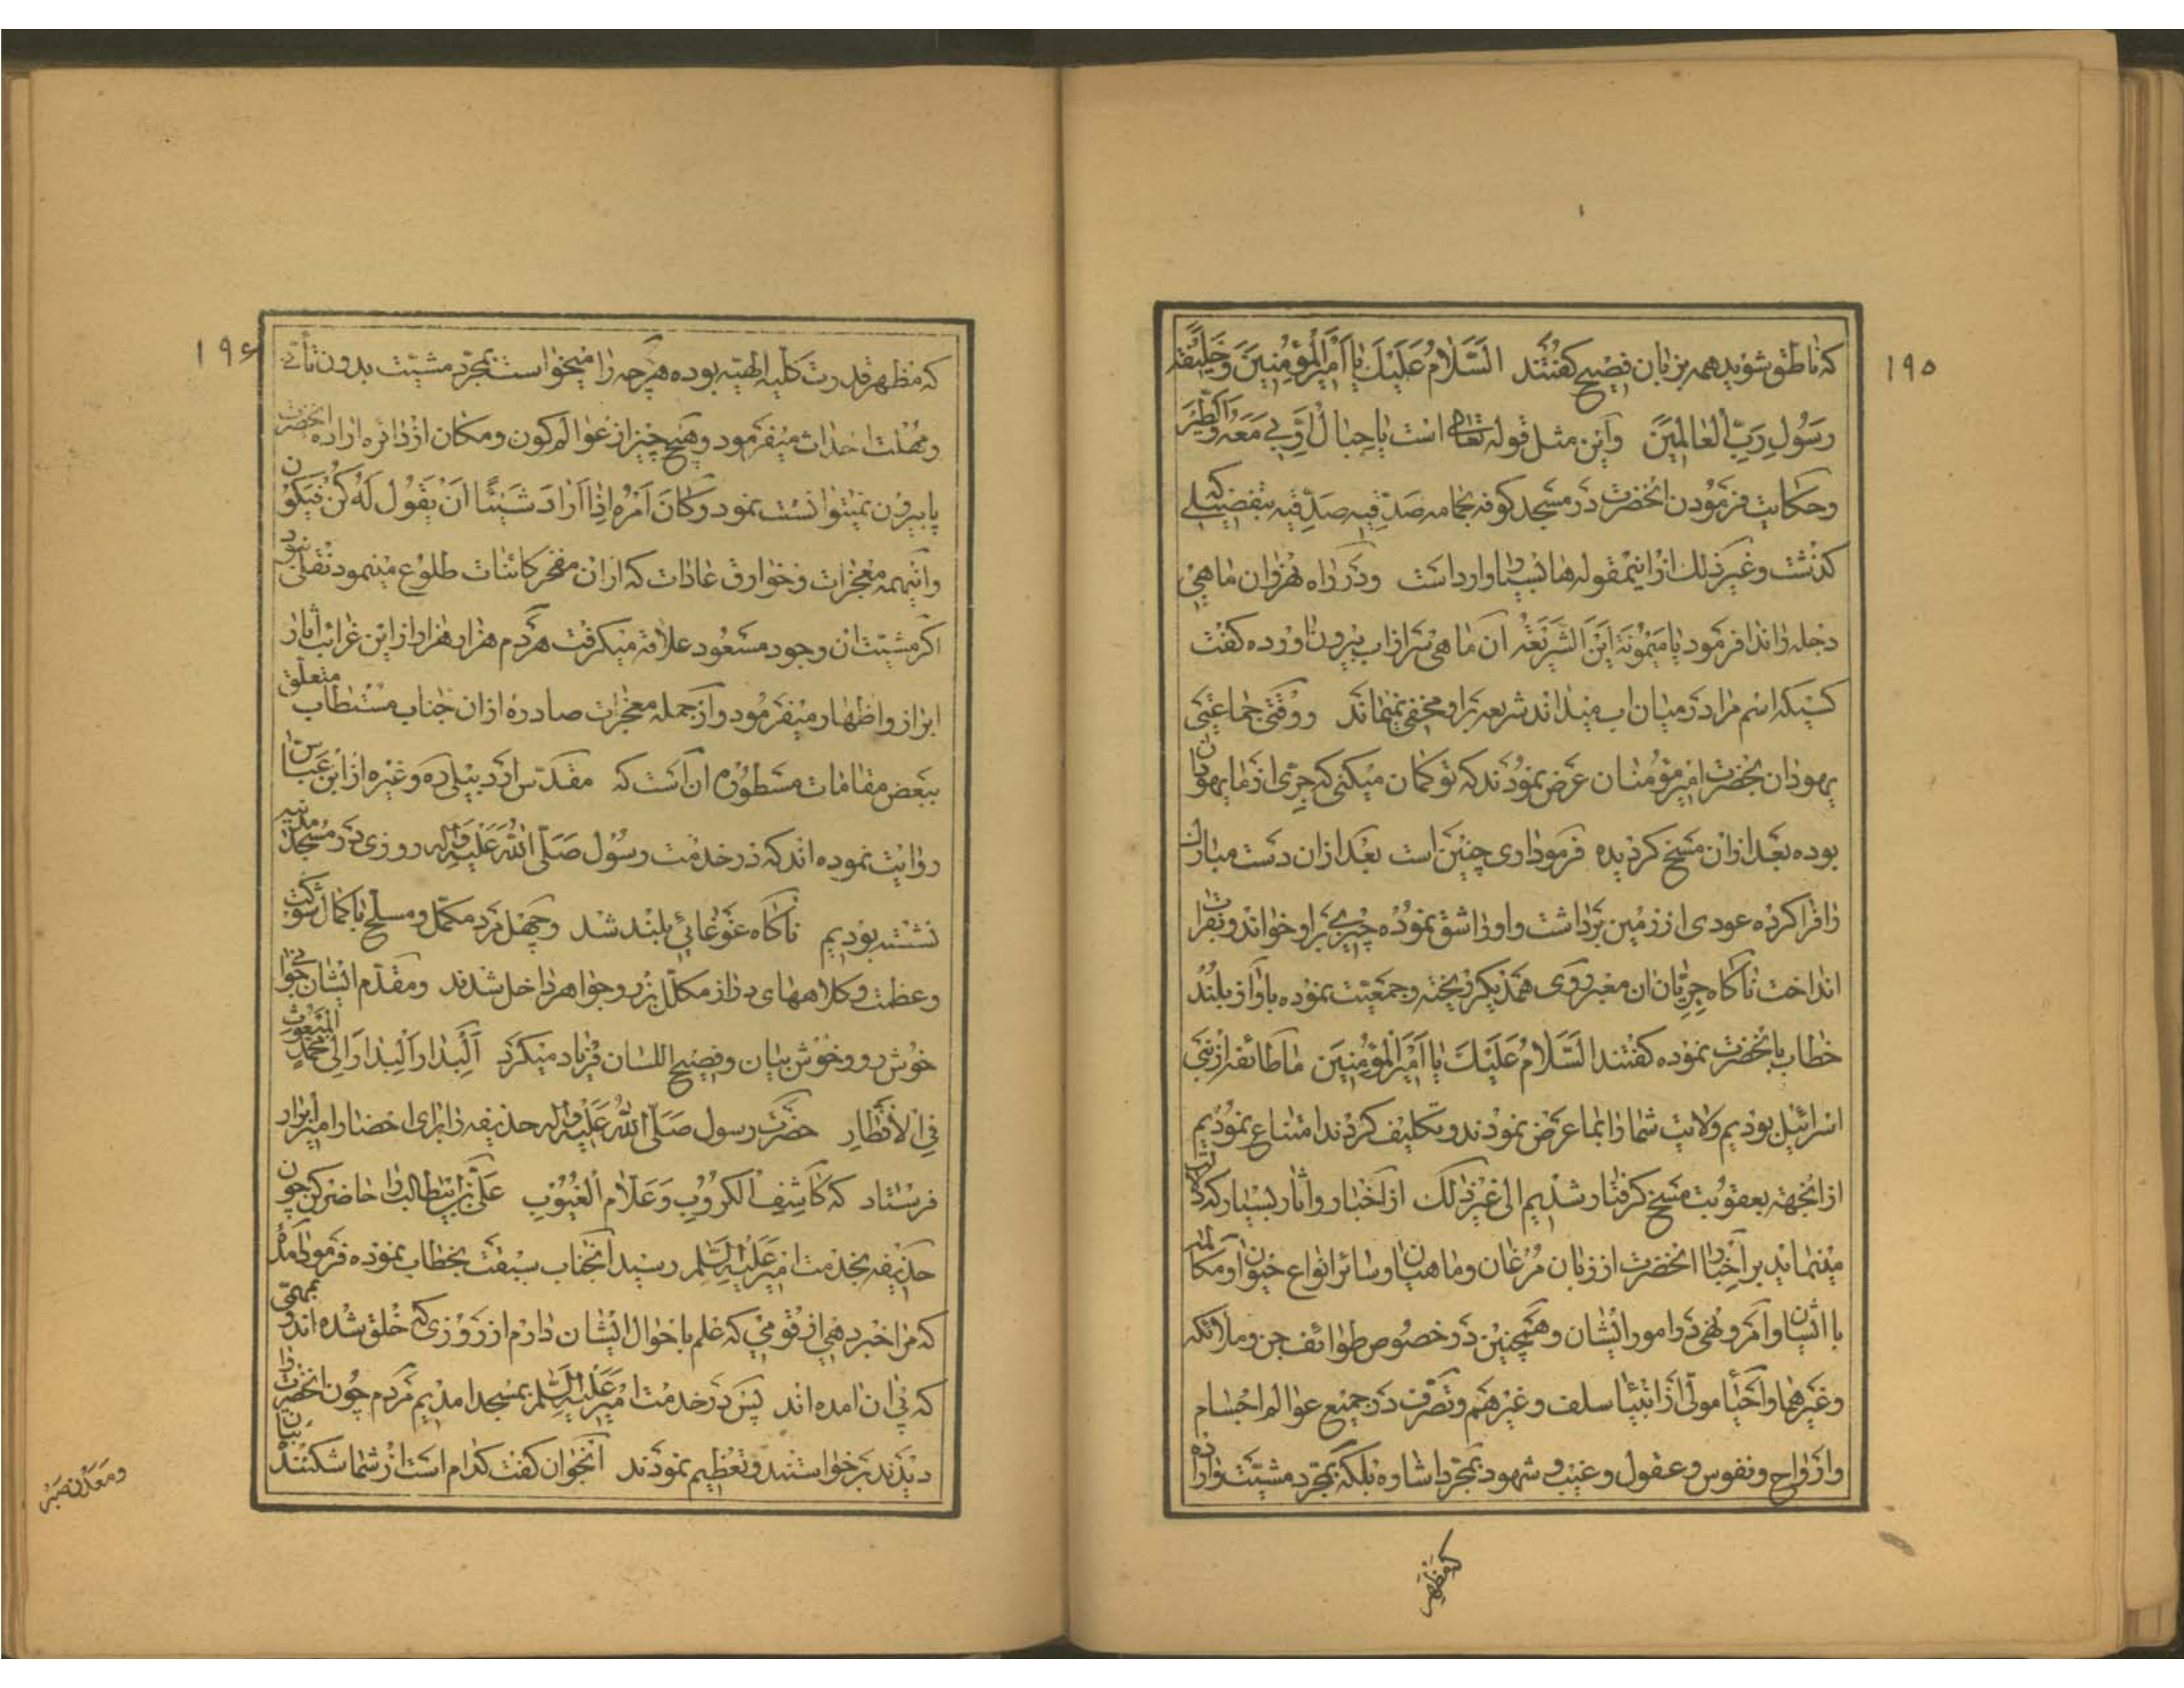 ۱۹۵
که ناطق شوید همه بزبان فصیح گفتند السَّلامُ عَلَیْكَ یا اَمیرَالْمُؤمِنینَ وَخَلیفَةَ
رَسُولِ رَبِّ الْعالَمینَ واین مثل قوله تعالی است یا جِبالُ اَوِّبی مَعَهُ وَالطَّیْرَ
وحکایت فرمودن انحضرت در مسجد کوفه بحمامه صدّقیه صدّقیه بتفضیلی که
کذشت وغیر ذلك ازاینمقوله ها بسیار وارد است ودر راه نهروان ماهی
دجله را ندا فرمود یا مَیْمُونَةُ اَیْنَ الشَّریعَةُ ان ماهی سر از اب بیرون اورده کفت
کسیکه اسم مرا در میان اب میداند شریعه بر او مخفی نمیماند ووقتی جماعتی
یهودان بحضرت امیر مؤمنان عرض نمودند که تو کمان میکنی که جرّی از ما یهودان
بوده بعد ازان مسخ کردیده فرمود اری چنین است بعد ازان دست مبارك
را فرا کرده عودی از زمین برداشت واورا شق نموده چیزی بر او خواند وبفرات
انداخت ناکاه جریّان ان معبر روی همدیکر ریخته وجمعیّت نموده باواز بلند
خطاب بانحضرت نموده کفتند السَّلامُ عَلَیْكَ یا اَمیرَالْمُؤمِنینَ ما طائفه از بنی
اسرائیل بودیم ولایت شمارا بما عرض نمودند وتکلیف کردند امتناع نمودیم
ازانجهة بعقوبت مسخ کرفتار شدیم الی غیر ذلك از اخبار واثار بسیار که دلالت
مینماید بر اخبار انحضرت از زبان مرغان وماهیان وسائر انواع حیوان ومکالمه
با ایشان وامر ونهی در امور ایشان وهمچنین در خصوص طوائف جن وملائکه
وغیرهما واحیاء موتی از انبیاء سلف وغیرهم وتصرّف در جمیع عوالم اجسام
وارواح ونفوس وعقول وغیب وشهود بمجرّد اشاره بلکه بمجرّد مشیّت واراده
که مظهر
۱۹۶
که مظهر قدرت کلیه الهیّه بوده هرچه را میخواست بمجرّد مشیّت بدون تأنّی
ومهلت احداث میفرمود وهیچ چیز از عوالم کون ومکان از دائره اراده انحضرت
پا بیرون نمیتوانست نمود وَکانَ اَمْرُهُ اِذا اَرادَ شَیْئًا اَنْ یَقُولَ لَهُ کُنْ فَیَکُونُ
واینهمه معجزات وخوارق عادات که ازان مفخر کائنات طلوع مینمود تفنّنی بود
اکر مشیّت ان وجود مسعود علاقه میکرفت هردم هزار هزار از این غرائب اثار
ابراز واظهار میفرمود واز جمله معجزات صادره ازان جناب مستطاب متعلّق
ببعض مقامات مسطوره ان است که مقدّس اردبیلی ره وغیره از ابن عبّاس
روایت نموده اند که در خدمت رسول صَلَّی اللهُ عَلَیْهِ وَآلِه روزی در مسجد مدینه
نشسته بودیم ناکاه غوغائی بلند شد وچهل مرد مکمّل ومسلّح با کمال شوکت
وعظمت وکلاههای دراز مکلّل بزر وجواهر داخل شدند ومقدّم ایشان جوانی
خوش رو وخوش بیان وفصیح اللسان فریاد میکرد اَلْبِدارَ اَلْبِدارَ اِلی مُحَمَّدٍ الْمَبْعُوثِ
فِی الْاَقْطارِ حضرت رسول صَلَّی اللهُ عَلَیْهِ وَآلِه حذیفه را برای احضار امیر ابرار
فرستاد که کاشِفِ الْکُرُوبِ وَعَلّامِ الْغُیُوبِ عَلیّ بن ابیطالب را حاضر کن چون
حذیفه بخدمت امیر عَلَیْهِ السَّلام رسید انجناب سبقت بخطاب نموده فرمود امدهٔ
که مرا خبر دهی از قومی که علم باحوال ایشان دارم از روزی که خلق شده اند وبمهمّی
که پی ان امده اند پس در خدمت امیر عَلَیْهِ السَّلام بمسجد امدیم مردم چون انحضرت را
دیدند برخواستند وتعظیم نمودند انجوان کفت کدام است از شما شکنندهٔ بتان
ومعدن صبر